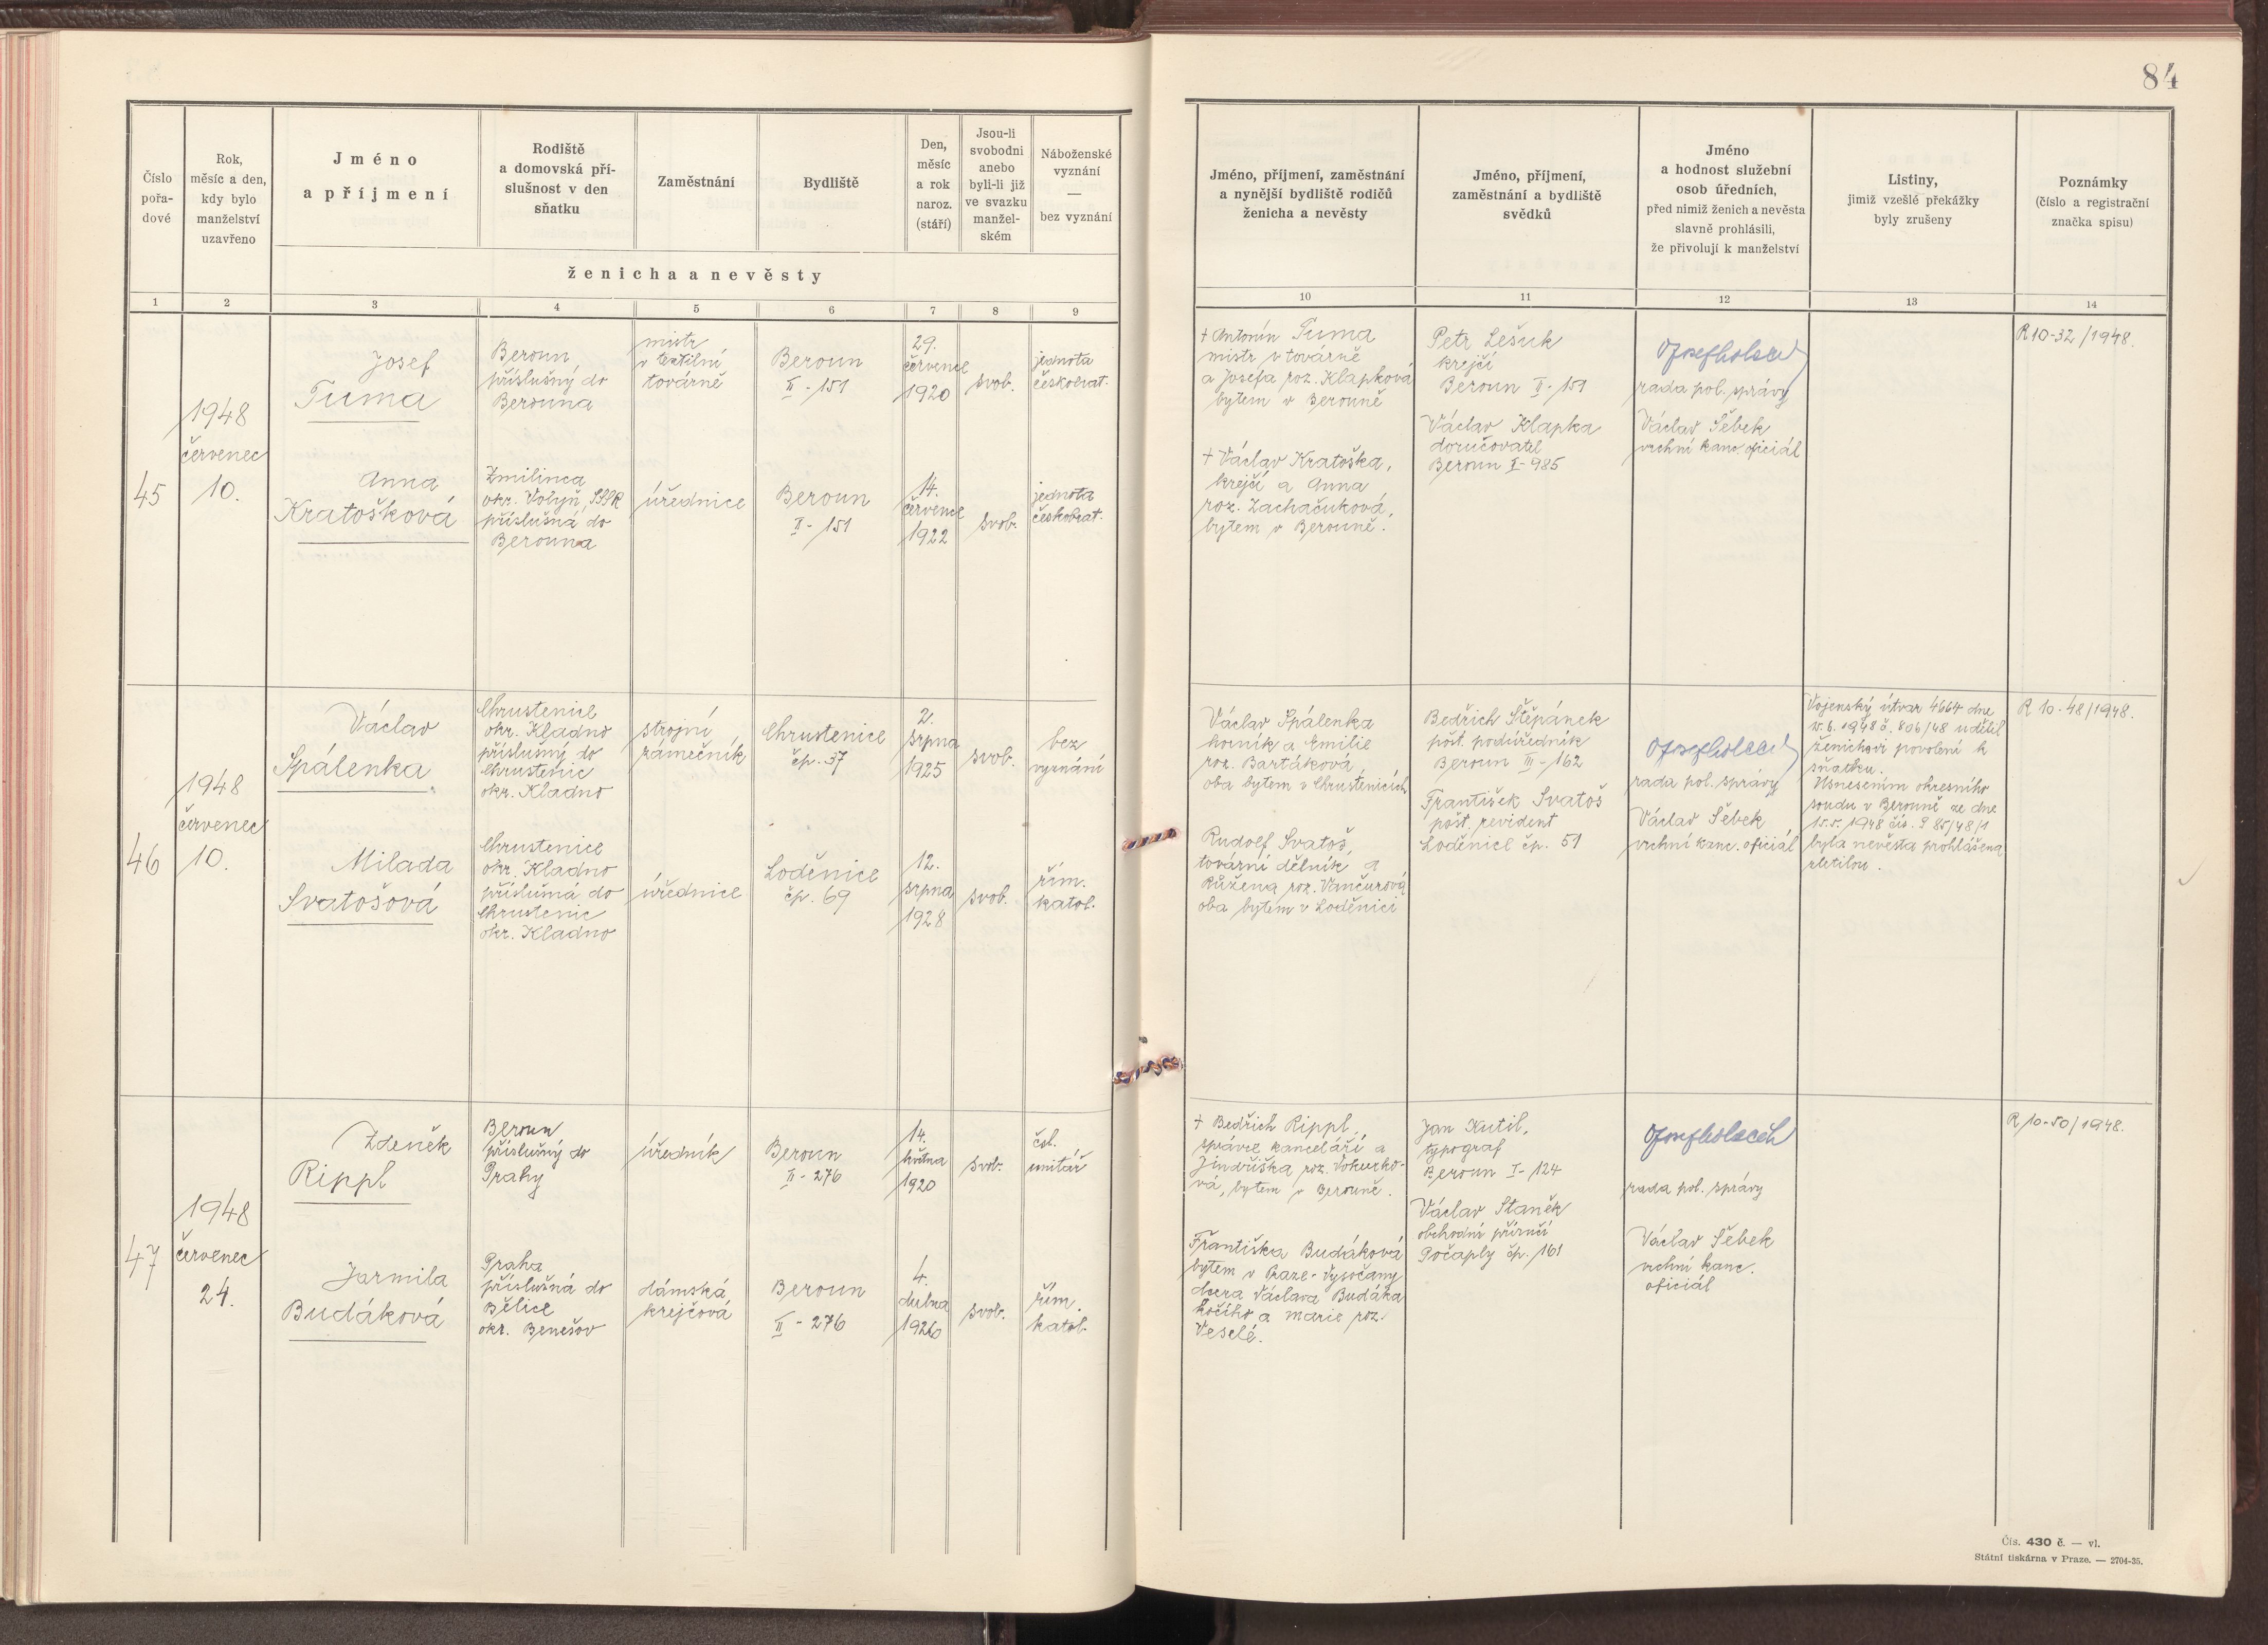 84
Číslo
pořa-
dové
Rok,
měsíc a den,
kdy bylo
manželství
uzavřeno
Jméno
a příjmení
Rodiště
a domovská pří-
slušnost v den
sňatku
Zaměstnání
Bydliště
Den,
měsíc
a rok
naroz.
(stáří)
Jsou-li
svobodni
anebo
byli-li již
ve svazku
manžel-
ském
Náboženské
vyznání
—
bez vyznání
ženicha a nevěsty
Jméno, příjmení, zaměstnání
a nynější bydliště rodičů
ženicha a nevěsty
Jméno, příjmení,
zaměstnání a bydliště
svědků
Jméno
a hodnost služební
osob úředních,
před nimiž ženich a nevěsta
slavně prohlásili,
že přivolují k manželství
Listiny,
jimiž vzešlé překážky
byly zrušeny
Poznámky
(číslo a registrační
značka spisu)
1 2 3 4 5 6 7 8 9 10 11 12 13 14
45
1948
červenec
10.
Josef
Tuma
Beroun
příslušný do
Berouna
mistr
v textilní
továrně
Beroun
II - 151
29.
července
1920
svob.
jednota
českobrat.
Anna
Kratošková
Zmilinca
okr. Volyň, SSSR
příslušná do
Berouna
úřednice
Beroun
II - 151
14.
července
1922
svob.
jednota
českobrat.
+ Antonín Tuma
mistr v továrně
a Josefa roz. Klapková
bytem v Berouně
+ Václav Kratoška,
krejčí a Anna
roz. Zachačuková,
bytem v Berouně.
Petr Lešuk
krejčí
Beroun II - 151
Václav Klapka
doručovatel
Beroun I - 985
rada pol. správy
Václav Šebek
vrchní kanc. oficiál
R 10-32/1948.
46
1948
červenec
10.
Václav
Spálenka
Chrustenice
okr. Kladno
příslušný do
Chrustenic
okr. Kladno
strojní
zámečník
Chrustenice
čp. 37
2.
srpna
1925
svob.
bez
vyznání
Milada
Svatošová
Chrustenice
okr. Kladno
příslušná do
Chrustenic
okr. Kladno
úřednice
Loděnice
čp. 69
12.
srpna
1928
svob.
řím.
katol.
Václav Spálenka
horník a Emilie
roz. Bartáková
oba bytem v Chrustenicích
Rudolf Svatoš,
tovární dělník a
Růžena roz. Vančurová
oba bytem v Loděnici
Bedřich Štěpánek
pošt. podúředník
Beroun III - 162
František Svatoš
pošt. revident
Loděnice čp. 51
rada pol. správy
Václav Šebek
vrchní kanc. oficiál
Vojenský útvar 4664 dne
6. 1948 č. 806/48 udělil
ženichovi povolení k
sňatku.
Usnesením okresního
soudu v Berouně ze dne
15.5.1948 čís. P 85/48/1
byla nevěsta prohlášena
zletilou.
R 10-48/1948.
47
1948
červenec
24.
Zdeněk
Rippl
Beroun
příslušný do
Prahy
úředník
Beroun
II - 276
14.
května
1920
svob.
čsl.
unitář
Jarmila
Budáková
Praha
příslušná do
Bělice
okr. Benešov
dámská
krejčová
Beroun
II - 276
4.
dubna
1926
svob.
řím.
katol.
+ Bedřich Rippl,
správce kanceláří a
Jindřiška roz. Vokurko-
vá, bytem v Berouně.
Františka Budáková
bytem v Praze-Vysočany
dcera Václava Budáka
kočího a Marie roz.
Veselé.
Jan Kutil,
typograf
Beroun I - 124
Václav Staněk
obchodní příručí
Počaply čp. 161
rada pol. správy
Václav Šebek
vrchní kanc.
oficiál
R 10-50/1948.
Čís. 430 č. — vl.
Státní tiskárna v Praze. — 2704-35.